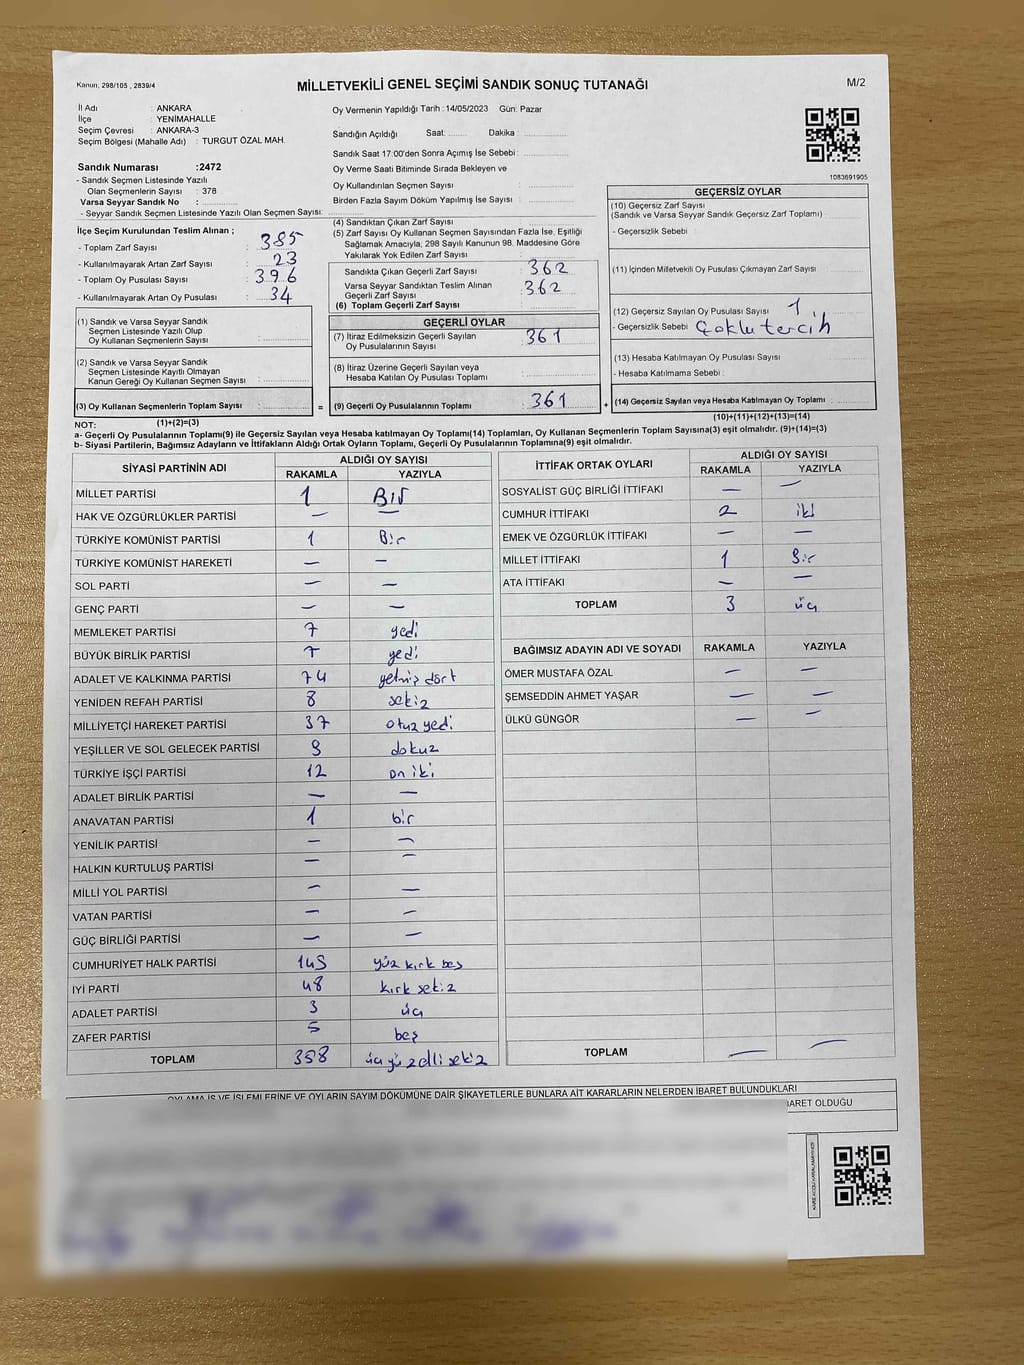 Kanun, 298/105 , 2839/4
MİLLETVEKİLİ GENEL SEÇİMİ SANDIK SONUÇ TUTANAĞI
M/2
İl Adı : ANKARA
İlçe : YENİMAHALLE
Seçim Çevresi : ANKARA-3
Seçim Bölgesi (Mahalle Adı) : TURGUT ÖZAL MAH.
Sandık Numarası :2472
- Sandık Seçmen Listesinde Yazılı
Olan Seçmenlerin Sayısı : 378
Varsa Seyyar Sandık No :
- Seyyar Sandık Seçmen Listesinde Yazılı Olan Seçmen Sayısı:
Oy Vermenin Yapıldığı Tarih : 14/05/2023 Gün: Pazar
Sandığın Açıldığı Saat: Dakika :
Sandık Saat 17:00'den Sonra Açımış İse Sebebi :
Oy Verme Saati Bitiminde Sırada Bekleyen ve
Oy Kullandırılan Seçmen Sayısı :
Birden Fazla Sayım Döküm Yapılmış İse Sayısı :
1083691905
İlçe Seçim Kurulundan Teslim Alınan ;
- Toplam Zarf Sayısı : 385
- Kullanılmayarak Artan Zarf Sayısı : 23
- Toplam Oy Pusulası Sayısı : 396
- Kullanılmayarak Artan Oy Pusulası : 34
(1) Sandık ve Varsa Seyyar Sandık
Seçmen Listesinde Yazılı Olup
Oy Kullanan Seçmenlerin Sayısı :
(2) Sandık ve Varsa Seyyar Sandık
Seçmen Listesinde Kayıtlı Olmayan
Kanun Gereği Oy Kullanan Seçmen Sayısı :
(3) Oy Kullanan Seçmenlerin Toplam Sayısı :
(4) Sandıktan Çıkan Zarf Sayısı :
(5) Zarf Sayısı Oy Kullanan Seçmen Sayısından Fazla İse, Eşitliği
Sağlamak Amacıyla, 298 Sayılı Kanunun 98. Maddesine Göre
Yakılarak Yok Edilen Zarf Sayısı :
Sandıkta Çıkan Geçerli Zarf Sayısı : 362
Varsa Seyyar Sandıktan Teslim Alınan
Geçerli Zarf Sayısı : 362
(6) Toplam Geçerli Zarf Sayısı :
GEÇERLİ OYLAR
(7) İtiraz Edilmeksizin Geçerli Sayılan
Oy Pusulalarının Sayısı : 361
(8) İtiraz Üzerine Geçerli Sayılan veya
Hesaba Katılan Oy Pusulası Toplamı :
= (9) Geçerli Oy Pusulalarının Toplamı : 361 +
GEÇERSİZ OYLAR
(10) Geçersiz Zarf Sayısı
(Sandık ve Varsa Seyyar Sandık Geçersiz Zarf Toplamı) :
- Geçersizlik Sebebi :
(11) İçinden Milletvekili Oy Pusulası Çıkmayan Zarf Sayısı :
(12) Geçersiz Sayılan Oy Pusulası Sayısı : 1
- Geçersizlik Sebebi : Çoklu tercih
(13) Hesaba Katılmayan Oy Pusulası Sayısı :
- Hesaba Katılmama Sebebi :
(14) Geçersiz Sayılan veya Hesaba Katılmayan Oy Toplamı :
NOT: (1)+(2)=(3)
(10)+(11)+(12)+(13)=(14)
a- Geçerli Oy Pusulalarının Toplamı(9) ile Geçersiz Sayılan veya Hesaba katılmayan Oy Toplamı(14) Toplamları, Oy Kullanan Seçmenlerin Toplam Sayısına(3) eşit olmalıdır. (9)+(14)=(3)
b- Siyasi Partilerin, Bağımsız Adayların ve İttifakların Aldığı Ortak Oyların Toplamı, Geçerli Oy Pusulalarının Toplamına(9) eşit olmalıdır.
SİYASİ PARTİNİN ADI ALDIĞI OY SAYISI
RAKAMLA YAZIYLA
MİLLET PARTİSİ 1 Bir
HAK VE ÖZGÜRLÜKLER PARTİSİ — —
TÜRKİYE KOMÜNİST PARTİSİ 1 Bir
TÜRKİYE KOMÜNİST HAREKETİ — —
SOL PARTİ — —
GENÇ PARTİ — —
MEMLEKET PARTİSİ 7 yedi
BÜYÜK BİRLİK PARTİSİ 7 yedi
ADALET VE KALKINMA PARTİSİ 74 yetmiş dört
YENİDEN REFAH PARTİSİ 8 sekiz
MİLLİYETÇİ HAREKET PARTİSİ 37 otuz yedi
YEŞİLLER VE SOL GELECEK PARTİSİ 9 dokuz
TÜRKİYE İŞÇİ PARTİSİ 12 on iki
ADALET BİRLİK PARTİSİ — —
ANAVATAN PARTİSİ 1 bir
YENİLİK PARTİSİ — —
HALKIN KURTULUŞ PARTİSİ — —
MİLLİ YOL PARTİSİ — —
VATAN PARTİSİ — —
GÜÇ BİRLİĞİ PARTİSİ — —
CUMHURİYET HALK PARTİSİ 145 yüz kırk beş
İYİ PARTİ 48 kırk sekiz
ADALET PARTİSİ 3 üç
ZAFER PARTİSİ 5 beş
TOPLAM 358 üçyüzellisekiz
İTTİFAK ORTAK OYLARI ALDIĞI OY SAYISI
RAKAMLA YAZIYLA
SOSYALİST GÜÇ BİRLİĞİ İTTİFAKI — —
CUMHUR İTTİFAKI 2 iki
EMEK VE ÖZGÜRLÜK İTTİFAKI — —
MİLLET İTTİFAKI 1 Bir
ATA İTTİFAKI — —
TOPLAM 3 üç
BAĞIMSIZ ADAYIN ADI VE SOYADI RAKAMLA YAZIYLA
ÖMER MUSTAFA ÖZAL — —
ŞEMSEDDİN AHMET YAŞAR — —
ÜLKÜ GÜNGÖR — —
TOPLAM — —
OYLAMA İŞ VE İŞLEMLERİNE VE OYLARIN SAYIM DÖKÜMÜNE DAİR ŞİKAYETLERLE BUNLARA AİT KARARLARIN NELERDEN İBARET BULUNDUKLARI
İBARET OLDUĞU